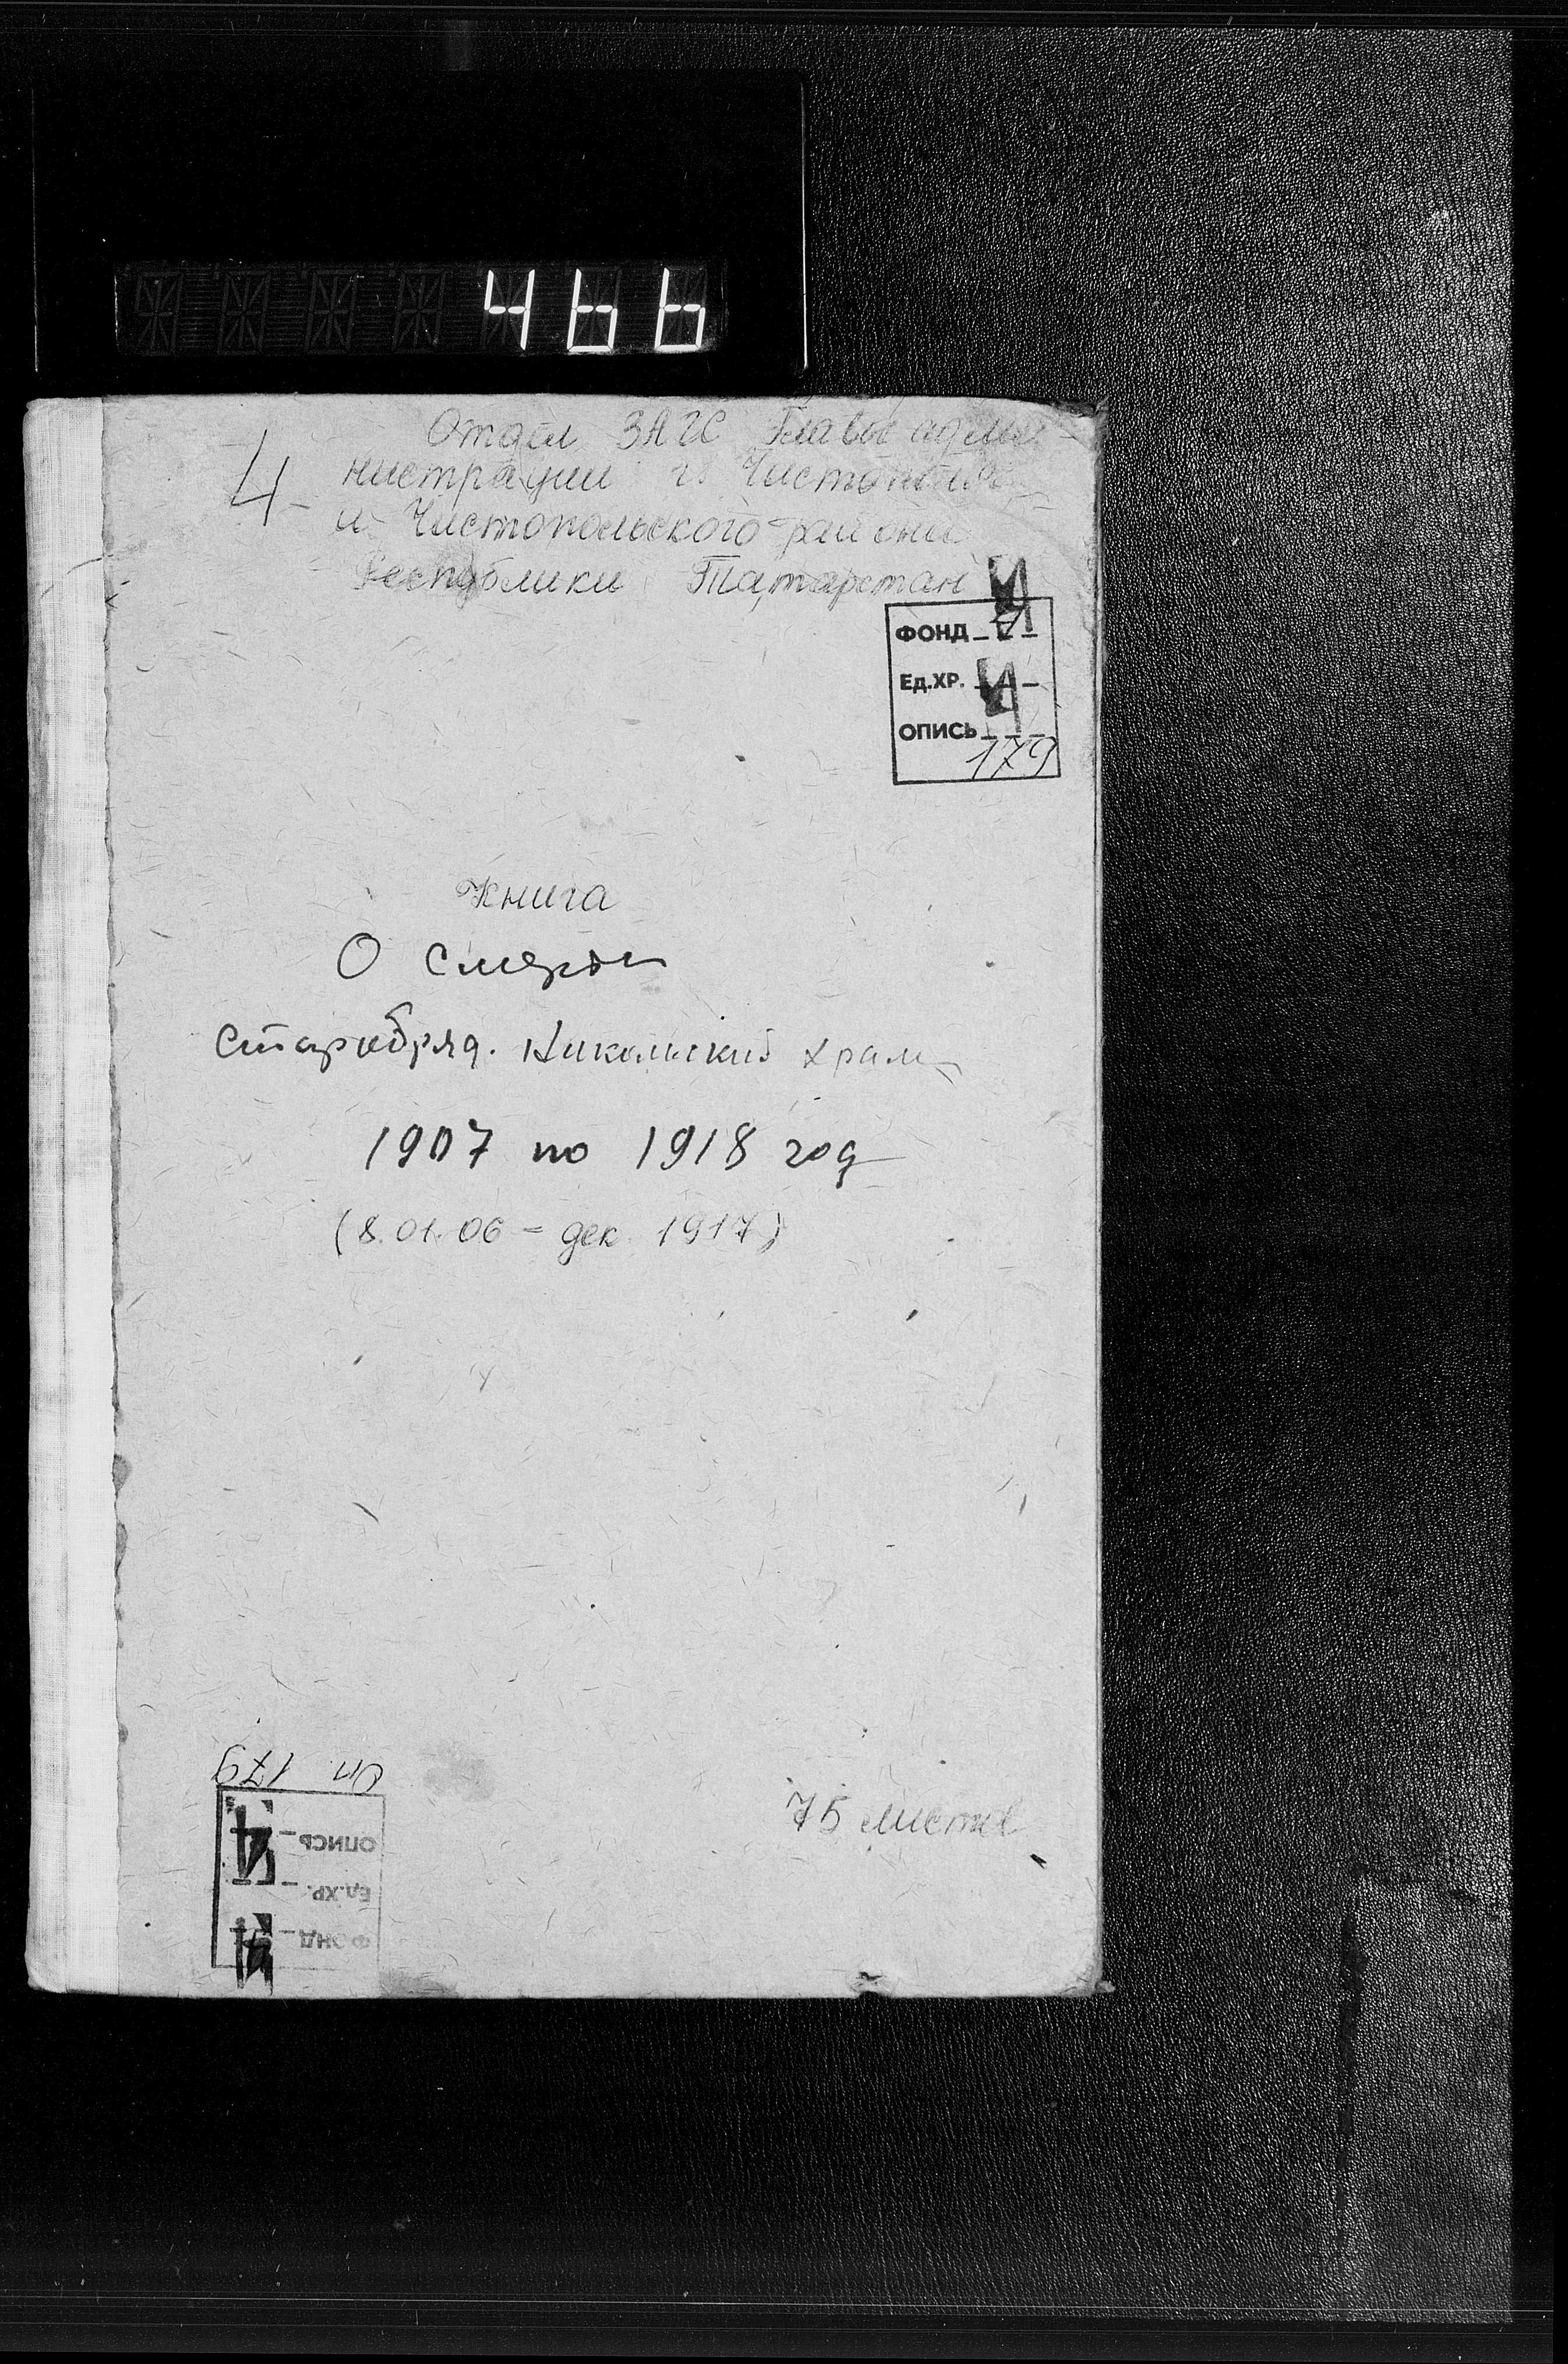 466
Отдел ЗАГС Главы адми-
4
нистрации г. Чистополя
и Чистопольского района
Республики Татарстан
ФОНД
Ед.ХР.
ОПИСЬ
179
Книга
О смерти
Старобряд. Никольский храм
1907 по 1918 год
(8.01.06 - дек. 1917)
75 листов
Оп 179
ОПИСЬ
Ед.ХР.
ФОНД